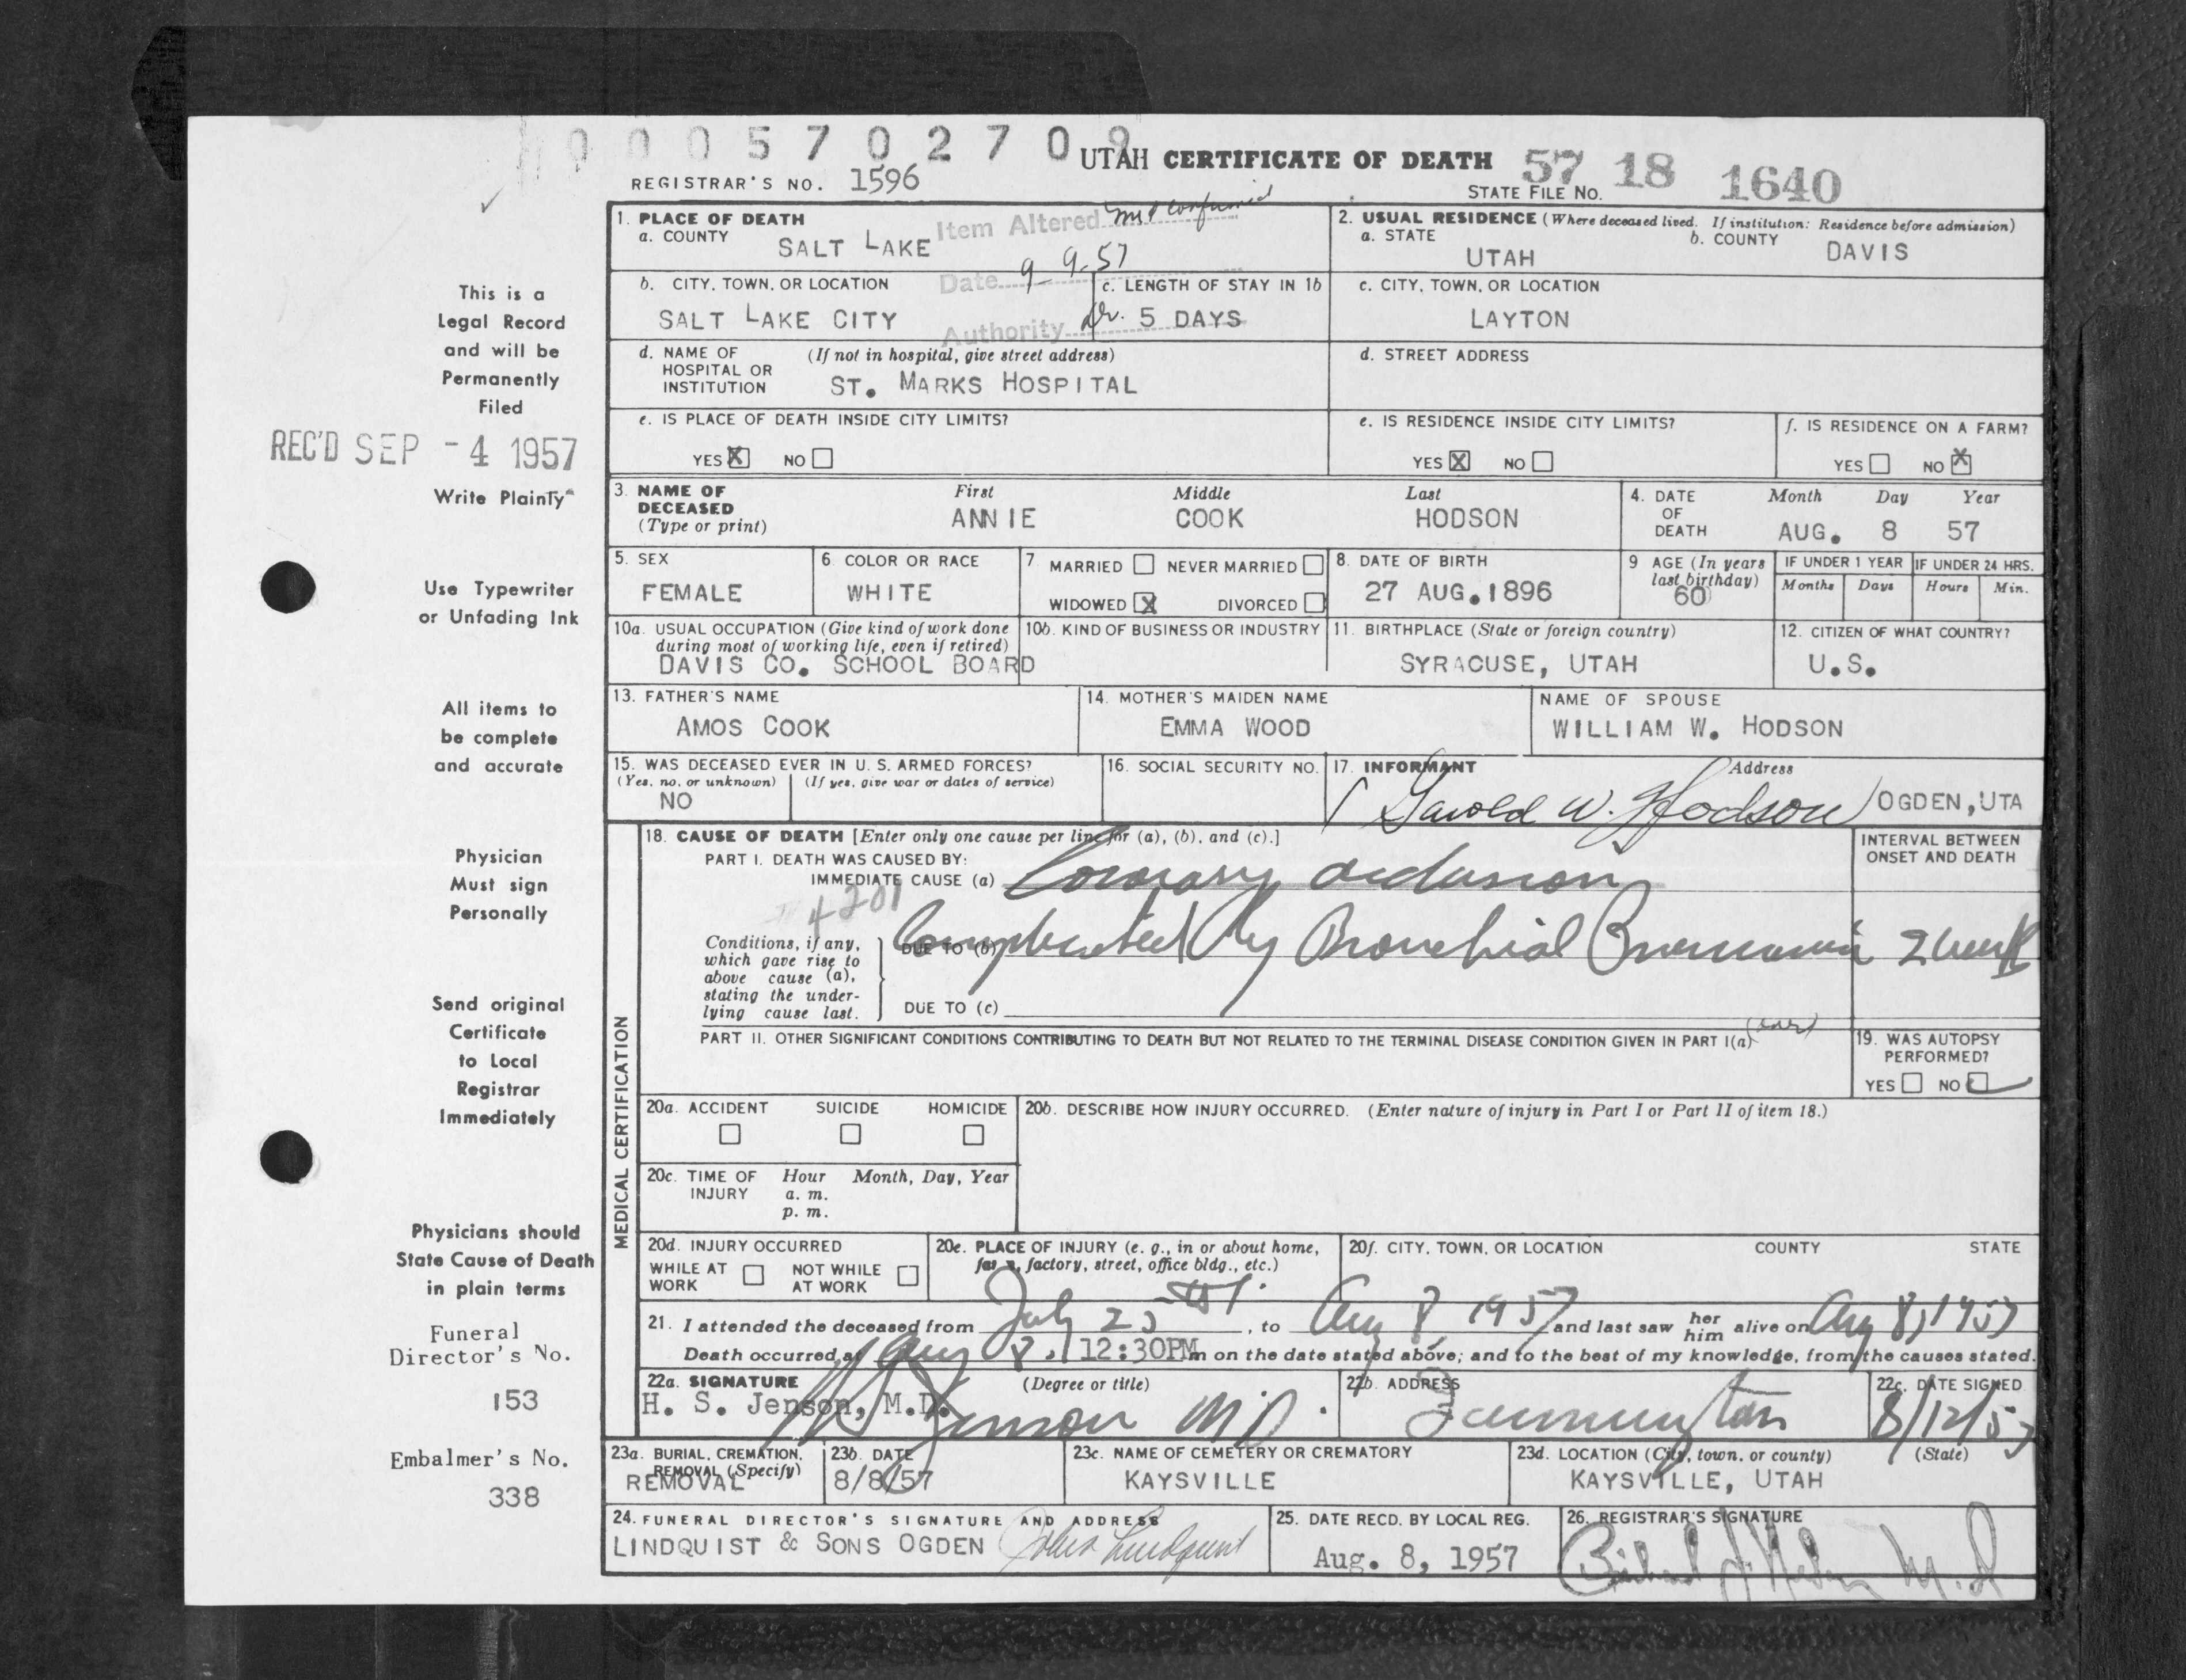 0 0 0 5 7 0 2 7 0 9
UTAH CERTIFICATE OF DEATH 57 18 1640
REGISTRAR'S NO. 1596
STATE FILE NO.
1. PLACE OF DEATH
a. COUNTY
SALT LAKE
Item Altered
Date 9-9-57
Authority Dr.
2. USUAL RESIDENCE (Where deceased lived. If institution: Residence before admission)
a. STATE
UTAH
b. COUNTY
DAVIS
b. CITY, TOWN, OR LOCATION
SALT LAKE CITY
c. LENGTH OF STAY IN 1b
5 DAYS
c. CITY, TOWN, OR LOCATION
LAYTON
d. NAME OF HOSPITAL OR INSTITUTION
(If not in hospital, give street address)
ST. MARKS HOSPITAL
d. STREET ADDRESS
e. IS PLACE OF DEATH INSIDE CITY LIMITS?
YES X NO
e. IS RESIDENCE INSIDE CITY LIMITS?
YES X NO
f. IS RESIDENCE ON A FARM?
YES NO X
3. NAME OF DECEASED
(Type or print)
First
ANNIE
Middle
COOK
Last
HODSON
4. DATE OF DEATH
Month Day Year
AUG. 8 57
5. SEX
FEMALE
6 COLOR OR RACE
WHITE
7 MARRIED NEVER MARRIED
WIDOWED X DIVORCED
8. DATE OF BIRTH
27 AUG. 1896
9 AGE (In years last birthday)
60
IF UNDER 1 YEAR
Months Days
IF UNDER 24 HRS.
Hours Min.
10a. USUAL OCCUPATION (Give kind of work done during most of working life, even if retired)
DAVIS CO. SCHOOL BOARD
10b. KIND OF BUSINESS OR INDUSTRY
11. BIRTHPLACE (State or foreign country)
SYRACUSE, UTAH
12. CITIZEN OF WHAT COUNTRY?
U.S.
13. FATHER'S NAME
AMOS COOK
14. MOTHER'S MAIDEN NAME
EMMA WOOD
NAME OF SPOUSE
WILLIAM W. HODSON
15. WAS DECEASED EVER IN U. S. ARMED FORCES?
(Yes, no, or unknown) (If yes, give war or dates of service)
NO
16. SOCIAL SECURITY NO.
17. INFORMANT Address
Garold W. Hodson OGDEN, UTA
18. CAUSE OF DEATH [Enter only one cause per line for (a), (b), and (c).]
PART I. DEATH WAS CAUSED BY:
IMMEDIATE CAUSE (a) Coronary occlusion
4201
INTERVAL BETWEEN ONSET AND DEATH
Conditions, if any, which gave rise to above cause (a), stating the underlying cause last.
DUE TO (b) Complicated by Bronchial Pneumonia 2 weeks
DUE TO (c)
PART II. OTHER SIGNIFICANT CONDITIONS CONTRIBUTING TO DEATH BUT NOT RELATED TO THE TERMINAL DISEASE CONDITION GIVEN IN PART I(a)
19. WAS AUTOPSY PERFORMED?
YES NO
20a. ACCIDENT SUICIDE HOMICIDE
20b. DESCRIBE HOW INJURY OCCURRED. (Enter nature of injury in Part I or Part II of item 18.)
20c. TIME OF INJURY
Hour Month, Day, Year
a. m.
p. m.
20d. INJURY OCCURRED
WHILE AT WORK NOT WHILE AT WORK
20e. PLACE OF INJURY (e. g., in or about home, farm, factory, street, office bldg., etc.)
20f. CITY, TOWN, OR LOCATION COUNTY STATE
21. I attended the deceased from July 25th, to Aug 8 1957 and last saw her him alive on Aug 8, 1957
Death occurred at Aug 8, 12:30PM m on the date stated above; and to the best of my knowledge, from the causes stated.
22a. SIGNATURE (Degree or title)
H. S. Jenson, M.D.
HS Jenson MD.
22b. ADDRESS
Farmington
22c. DATE SIGNED
8/12/57
23a. BURIAL, CREMATION, REMOVAL (Specify)
REMOVAL
23b. DATE
8/8/57
23c. NAME OF CEMETERY OR CREMATORY
KAYSVILLE
23d. LOCATION (City, town, or county) (State)
KAYSVILLE, UTAH
24. FUNERAL DIRECTOR'S SIGNATURE AND ADDRESS
LINDQUIST & SONS OGDEN John Lindquist
25. DATE RECD. BY LOCAL REG.
Aug. 8, 1957
26. REGISTRAR'S SIGNATURE
M.D
MEDICAL CERTIFICATION
This is a
Legal Record
and will be
Permanently
Filed
REC'D SEP -4 1957
Write Plainly
Use Typewriter
or Unfading Ink
All items to
be complete
and accurate
Physician
Must sign
Personally
Send original
Certificate
to Local
Registrar
Immediately
Physicians should
State Cause of Death
in plain terms
Funeral
Director's No.
153
Embalmer's No.
338